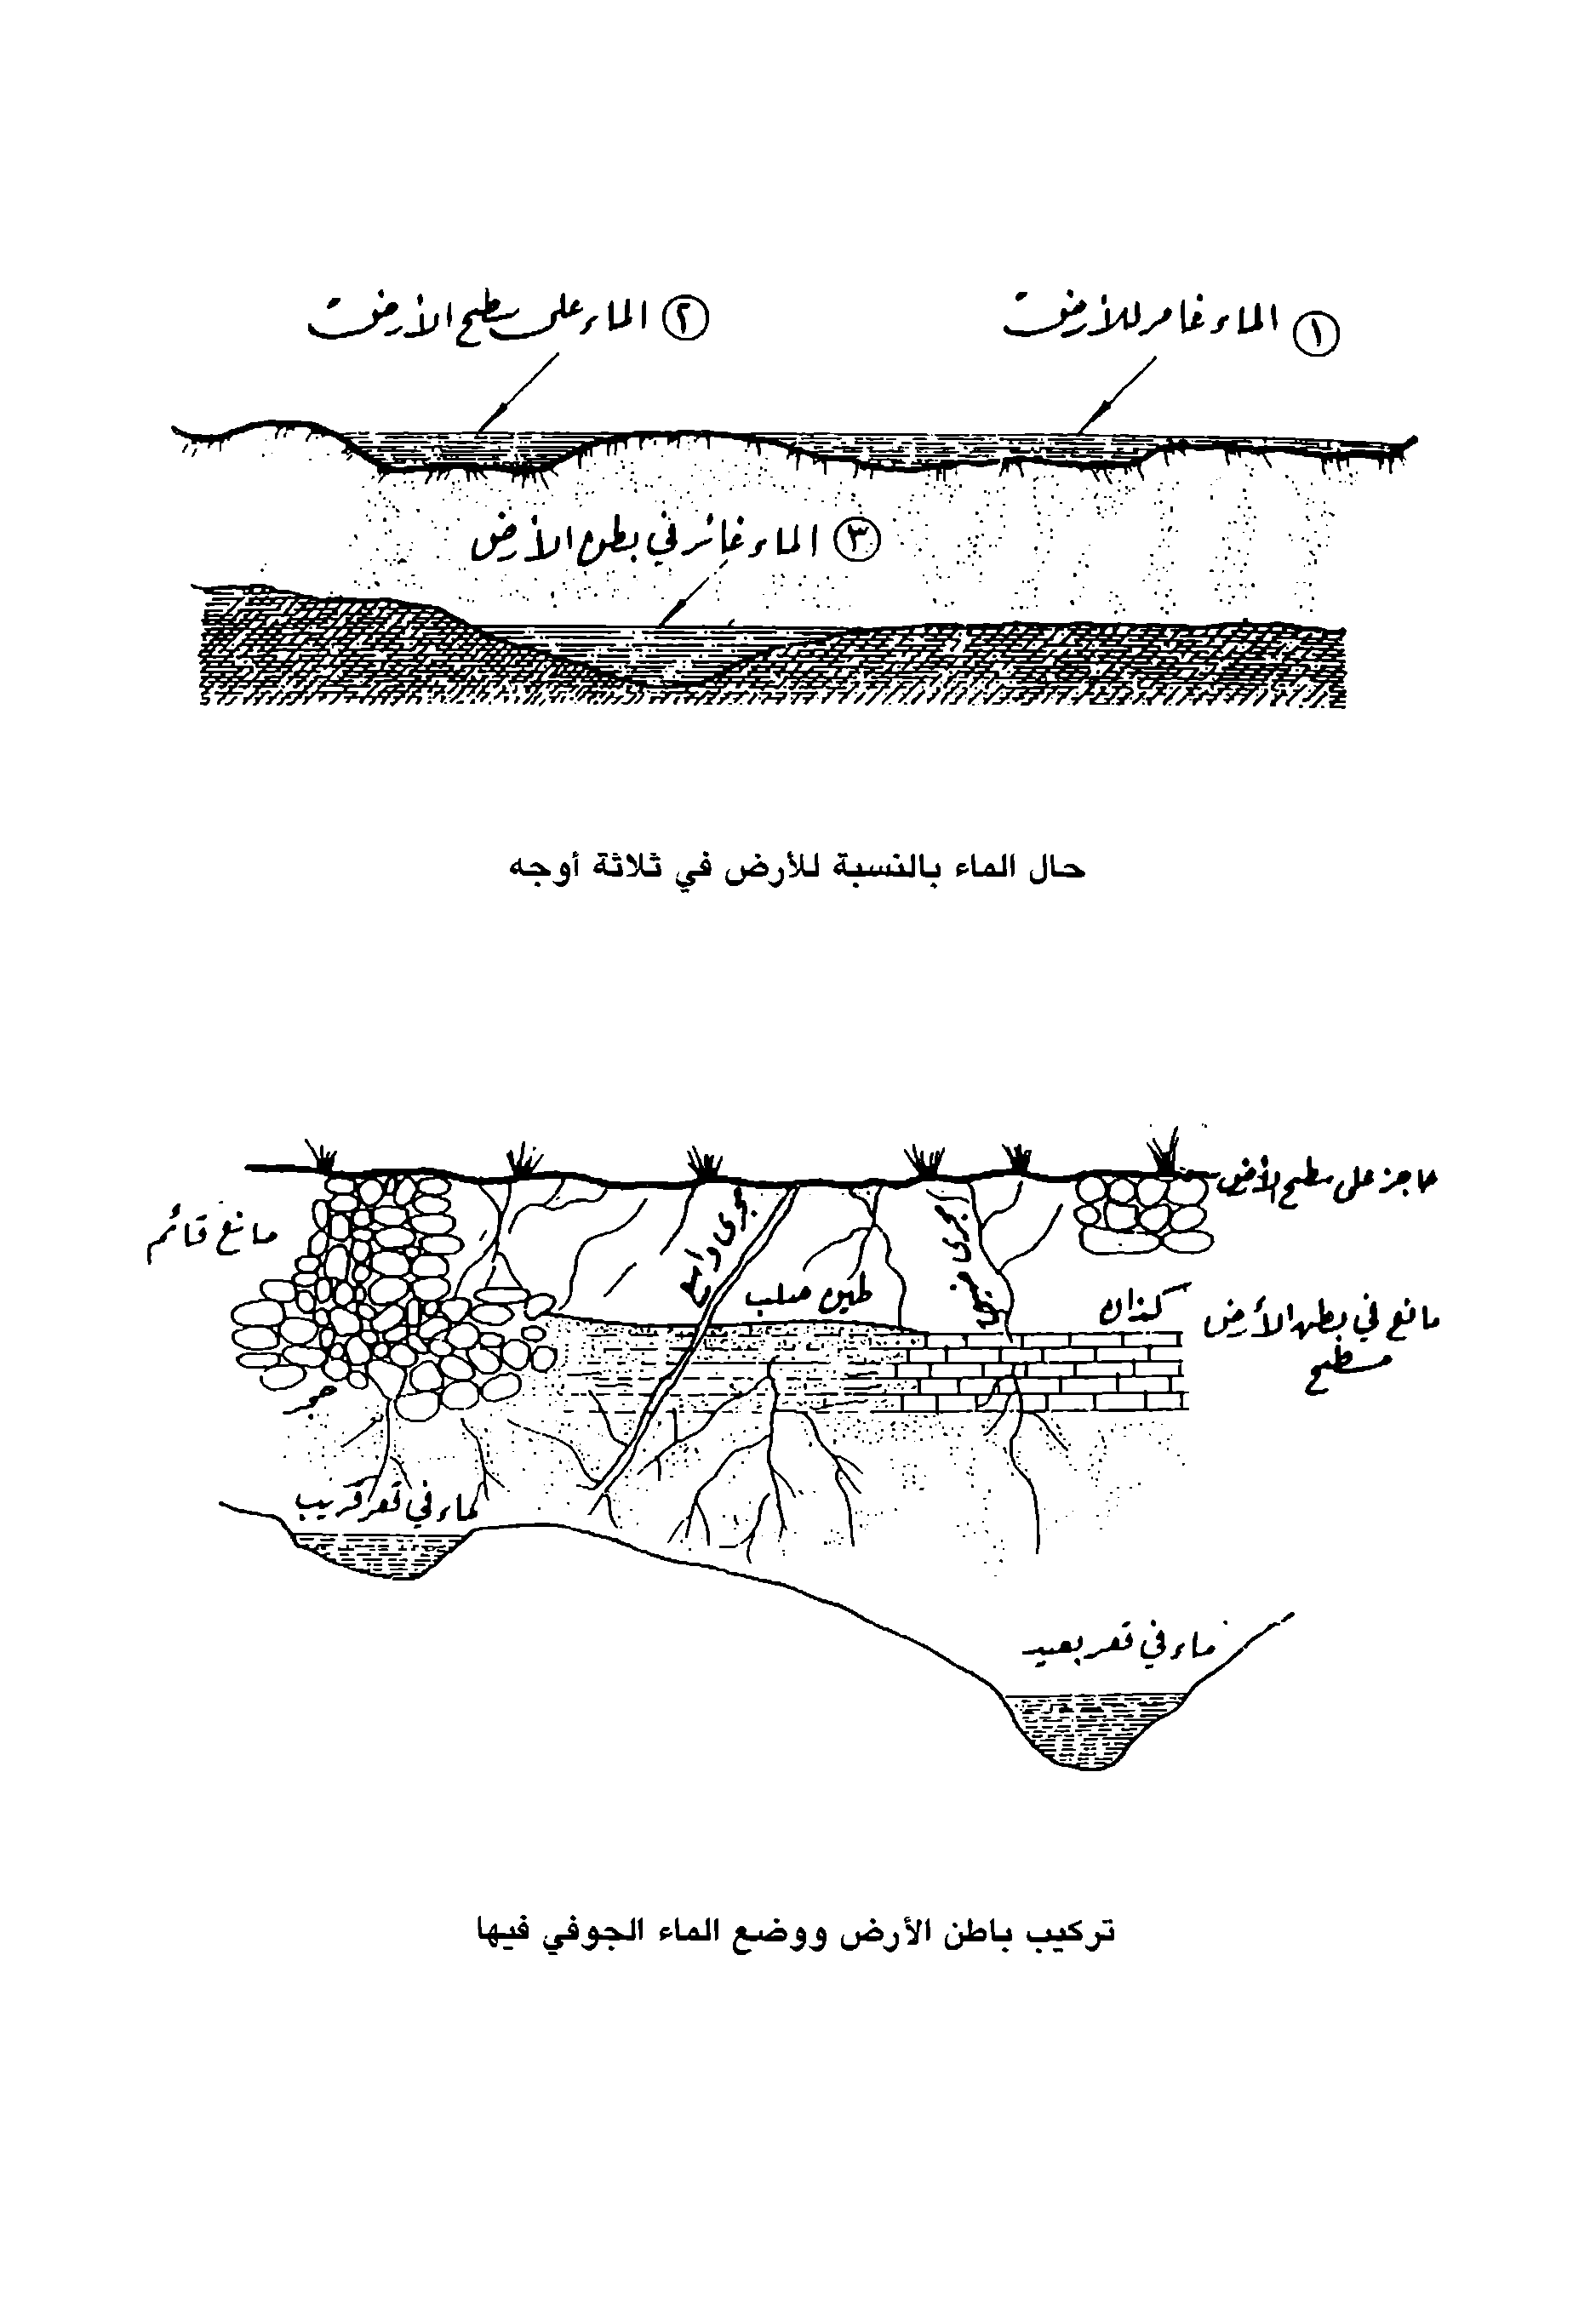 ① الماء غامر للأرض
② الماء على سطح الأرض
③ الماء غائر في بطن الأرض
حال الماء بالنسبة للأرض في ثلاثة أوجه
حاجز على سطح الأرض
مانع قائم
مجرى واسع
مجرى خفي
طين صلب
كذان
مانع في بطن الأرض
مسطح
حجر
ماء في قعر قريب
ماء في قعر بعيد
تركيب باطن الأرض ووضع الماء الجوفي فيها